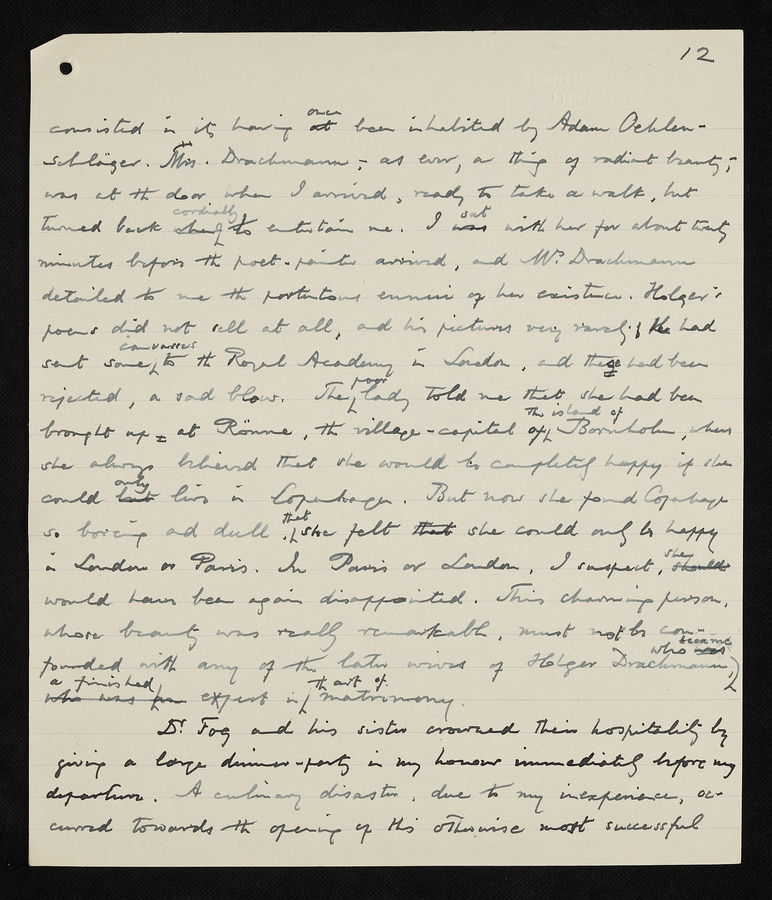 12
consisted in its having once at been inhabited by Adam Oehlen-
schläger. Mrs. Drachmann, - as ever, a thing of radiant beauty, -
was at the door when I arrived, ready to take a walk, but
turned back cordially to entertain me. I was sat with her for about twenty
minutes before the poet-painter arrived, and Mrs Drachmann
detailed to me the portentous ennui of her existence. Holger's
poems did not sell at all, and his pictures very rarely; He had
sent some canvasses to the Royal Academy in London, and these had been
rejected, a sad blow. The poor lady told me that she had been
brought up at Rönne, the village-capital of the island of Bornholm, where
she always believed that she would be completely happy if she
could but only live in Copenhagen. But now she found Copenhagen
so boring and dull that she felt that she could only be happy
in London or Paris. In Paris or London, I suspect, should she
would have been again disappointed. This charming person,
whose beauty was really remarkable, must not be con-
founded with any of the later wives of Holger Drachmann, who was became
who was a finished expert in the art of matrimony.
Dr. Fog and his sister crowned their hospitality by
giving a large dinner-party in my honour immediately before my
departure. A culinary disaster, due to my inexperience, oc-
curred towards the opening of this otherwise most successful